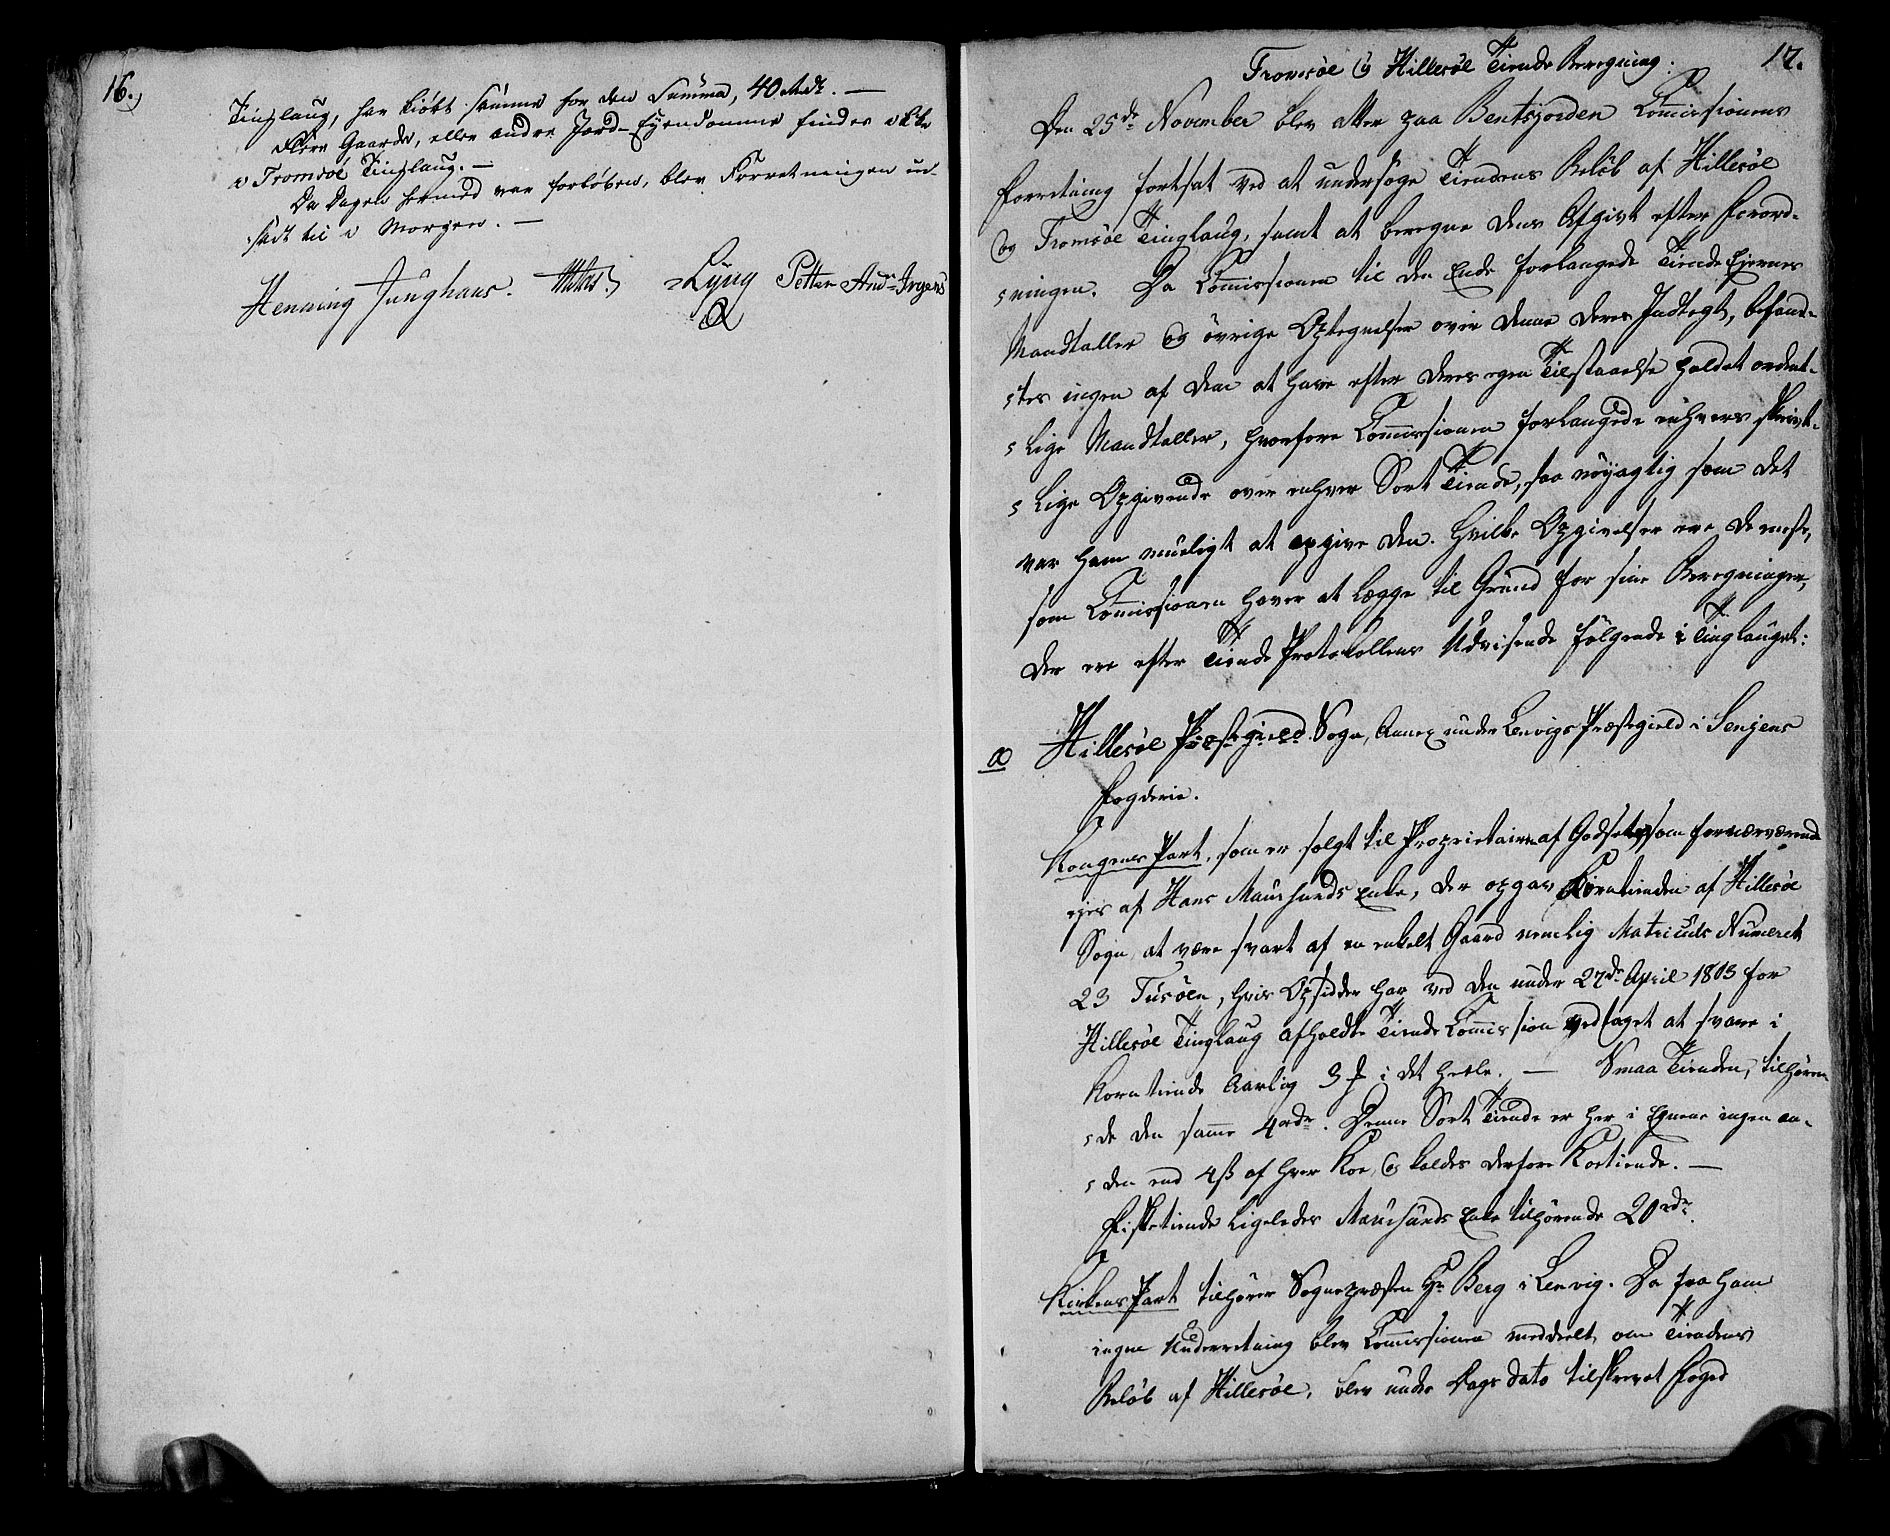 16.)
Tinglaug, har kiøbt samme for den Summa, 40 Rdr. —
Flere Gaarde, eller andre Jord-Eyendomme findes ikke
i Tromsøe Tinglaug. —
Da Dagen hermed var forløben, blev Forretningen ud-
sadt til i Morgen. —
Henning Junghans. Lyng Petter And: Irgens
17.
Tromsøe og Hillesøe Tiende Beregning.
Den 25de November blev atter paa Bentsjorden Commissionens
Forretning fortsat ved at undersøge Tiendens Beløb af Hillesøe
og Tromsøe Tinglaug, samt at beregne dens Afgivt efter Forord-
ningen. Da Commissionen til den Ende forlangede Tiende Ejernes
Mandtaller og øvrige Optegnelser over denne deres Indtægt, befand-
tes ingen af dem at have efter deres egen Tilstaaelse holdet ordent-
lige Mandtaller, hvorfore Commissionen forlangede enhvers skrivt-
lige Opgivende over enhver Sort Tiende, saa nøyagtig som det
var ham mueligt at opgive den. Hvilke Opgivelser ere de meste,
som Commissionen haver at lægge til Grund for sine Beregninger,
der ere efter Tiende Protokollens Udvisende følgende i Tinglauget:
a Hillesøe Præstegield Sogn, Annex under Lenvigs Præstegield i Senjens
Fogderie.
Kongens Part, som er solgt til Proprietairen af Godset, som fornærværende
ejes af Hans Maursunds Enke, der opgav Korntienden af Hillesøe
Sogn at være svart af en enkelt Gaard nemlig Matriculs Numeret
23 Tusøen, hvis Opsidder har ved den under 27de April 1803 for
Hillesøe Tinglaug afholdte Tiende Commission vedtaget at svare i
Korntiende Aarlig 3 ß i det heele. — Smaa Tienden, tilhøren-
de den samme 4 rdr. Denne Sort Tiende er her i Egnene ingen an-
den end 4 ß af hver Koe, og kaldes derfore Koetiende. —
Fisketiende ligeledes Maursunds Enke tilhørende 20 rdr.
Kirkens Part tilhører Sognepræsten Hr Berg i Lenvig. Da fra ham
ingen Underretning blev Commissionen meddeelt om Tiendens
Beløb af Hillesøe, blev under Dags dato tilskrevet Foged